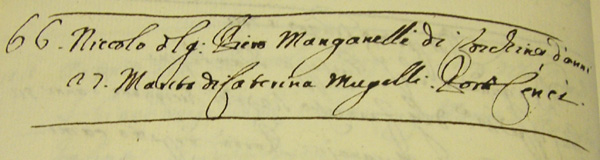 66. Niccolo dlq: Piero Manganelli di d'anni
27. Marito di Caterina Mugelli. Porta Cenci.